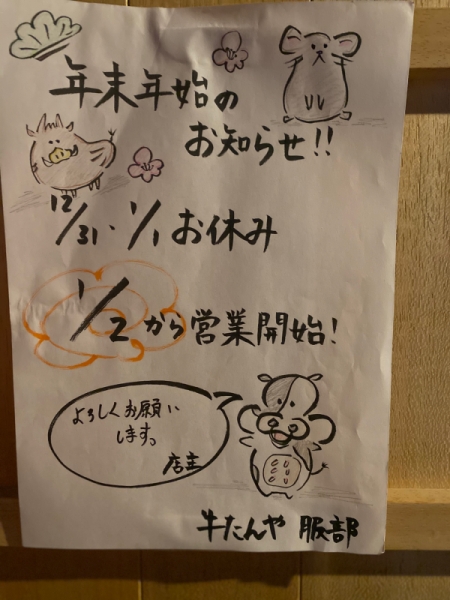 年末年始の
お知らせ!!
12/31・1/1お休み
1/2から営業開始!
よろしくお願い
します。
店主
牛たんや 服部